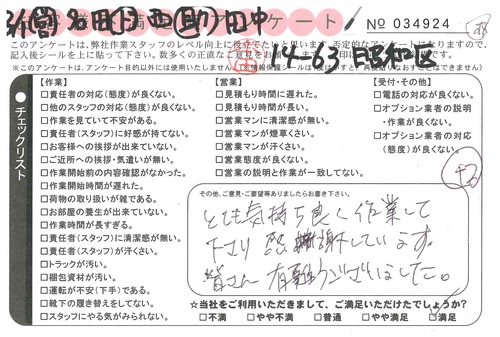 アンケート!
No 034924
岩田 西 田中
14-63 昭和区
このアンケートは、弊社作業スタッフのレベル向上に役立てたいと思います。否定的なアンケートになりますので、
記入後シールを上に貼って下さい。数多くの正直なご意見を
※このアンケートは、アンケート目的以外には使用いたしません
チェックリスト
【作業】
□責任者の対応(態度)が良くない。
□他のスタッフの対応(態度)が良くない。
□作業を見ていて不安がある。
□責任者(スタッフ)に好感が持てない。
□お客様への挨拶が出来ていない。
□ご近所への挨拶・気遣いが無い。
□作業開始前の内容確認がなかった。
□作業開始時間が遅れた。
□荷物の取り扱いが雑である。
□お部屋の養生が出来ていない。
□作業時間が長すぎる。
□責任者(スタッフ)に清潔感が無い。
□責任者(スタッフ)が汗くさい。
□トラックが汚い。
□梱包資材が汚い。
□運転が不安(下手)である。
□靴下の履き替えをしてない。
□スタッフにやる気がみられない。
【営業】
□見積もり時間に遅れた。
□見積もり時間が長い。
□営業マンに清潔感が無い。
□営業マンが煙草くさい。
□営業マンが汗くさい。
□営業態度が良くない。
□営業の説明と作業が一致してない。
【受付・その他】
□電話の対応が良くない。
□オプション業者の説明
・作業が良くない。
□オプション業者の対応
(態度)が良くない。
その他、ご意見・ご要望等ありましたらお書き下さい。
とても気持ち良く作業して
下さり 感謝しています。
皆さん 有難うございました。
☆当社をご利用いただきまして、ご満足いただけたでしょうか?
□不満 □やや不満 □普通 □やや満足 □満足